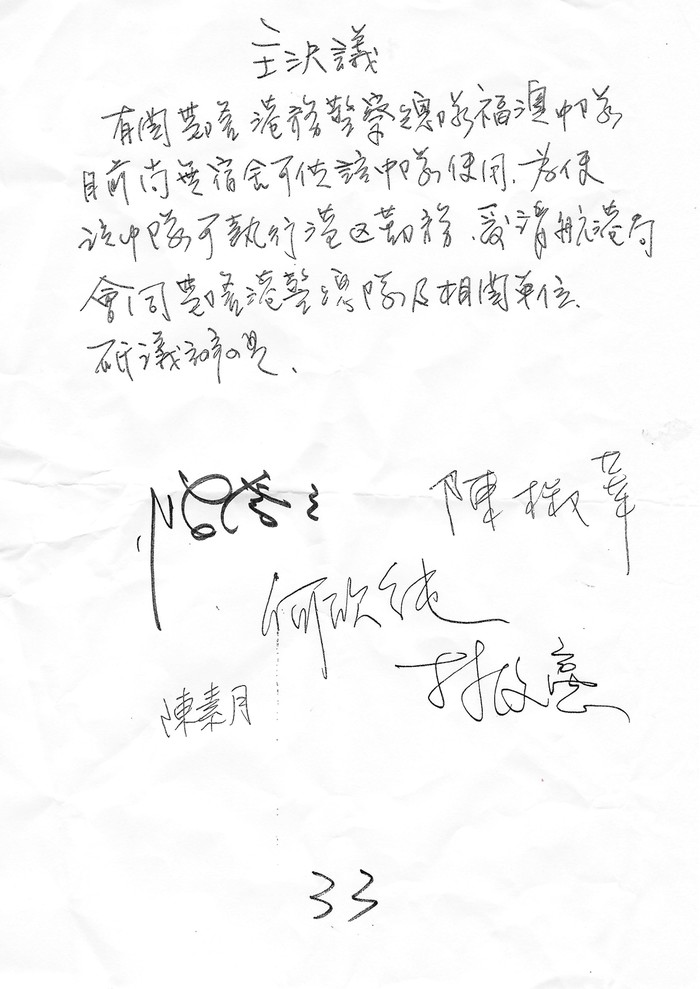 主決議
有關基隆港務警察總隊福澳中隊
目前尚無宿舍可供該中隊使用,為使
該中隊可執行港區勤務、爰請航港局
會同基隆港警總隊及相關單位、
研議辦理、
陳椒華
何欣純
林俊憲
陳素月
33